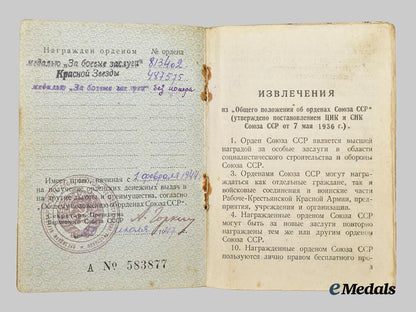 Награжден орденом № ордена
медалью „За боевые заслуги" 813402
Красной Звезды 487575
медалью „За боевые заслуги" без номера
Имеет право, начиная с 1 февраля 1944
на получение орденских денежных выдач и
на другие льготы и преимущества, согласно
„Общему положению об орденах Союза ССР".
Секретарь Президиума
А. Горкин
А № 583877
ИЗВЛЕЧЕНИЯ
из „Общего положения об орденах Союза ССР"
(утверждено постановлением ЦИК и СНК
Союза ССР от 7 мая 1936 г.).
1. Орден Союза ССР является высшей
наградой за особые заслуги в области
социалистического строительства и обороны
Союза ССР.
3. Орденами Союза ССР могут на-
граждаться как отдельные граждане, так и
войсковые соединения и воинские части
Рабоче-Крестьянской Красной Армии, пред-
приятия, учреждения и организации.
4. Награжденные орденом Союза ССР
могут быть за новые заслуги повторно
награждены тем же или другим орденом
Союза ССР.
10. Награжденные орденом Союза ССР
пользуются лично правом бесплатного про-
3
eMedals